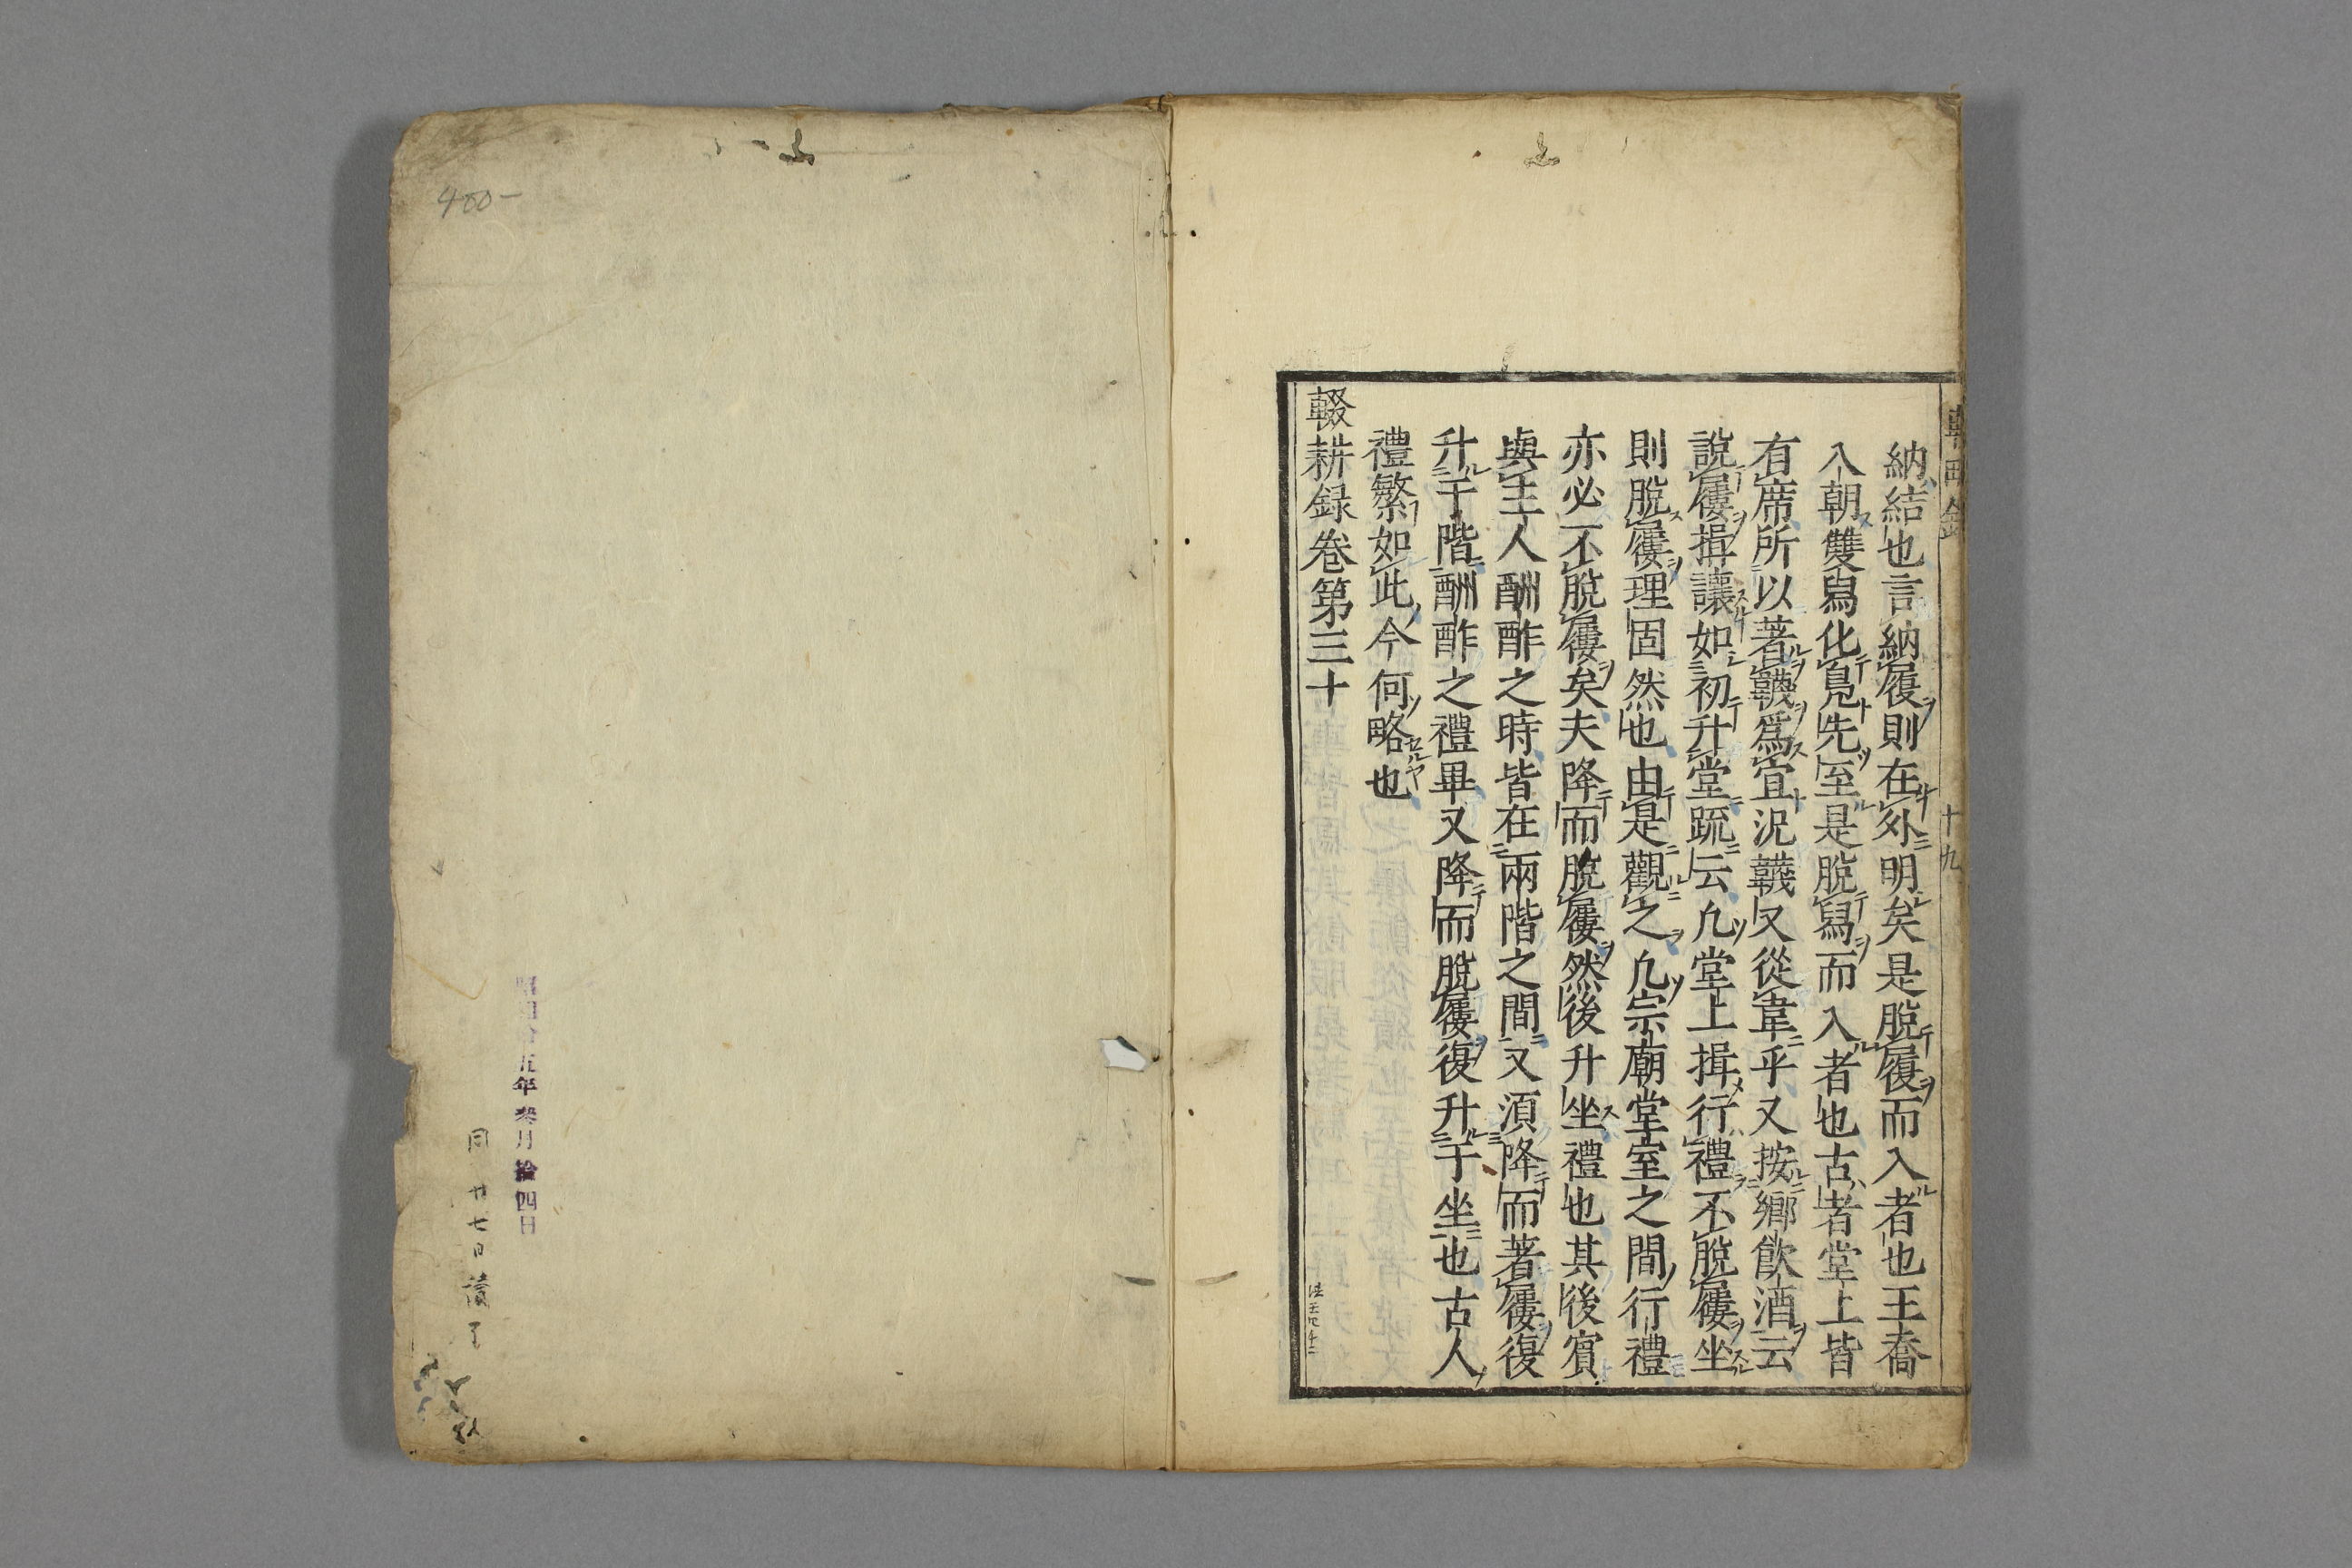 納結也言納履則在外明矣是脫履而入者也王喬
入朝雙舄化鳬先至是脫舄而入者也古者堂上皆
有席所以著韈爲宜況韈又從韋乎又按鄉飲酒云
說屨揖讓如初升堂疏云凢堂上揖行禮不脫屨坐
則脫屨理固然也由是觀之凢宗廟堂室之間行禮
亦必不脫屨矣夫降而脫屨然後升坐禮也其後賓
與主人酬酢之時皆在兩階之間又須降而著屨復
升于階酬酢之禮畢又降而脫屨復升于坐也古人
禮繁如此今何略也
輟耕録卷第三十
十九
400-
昭和拾五年叄月拾四日
同廿七日讀了